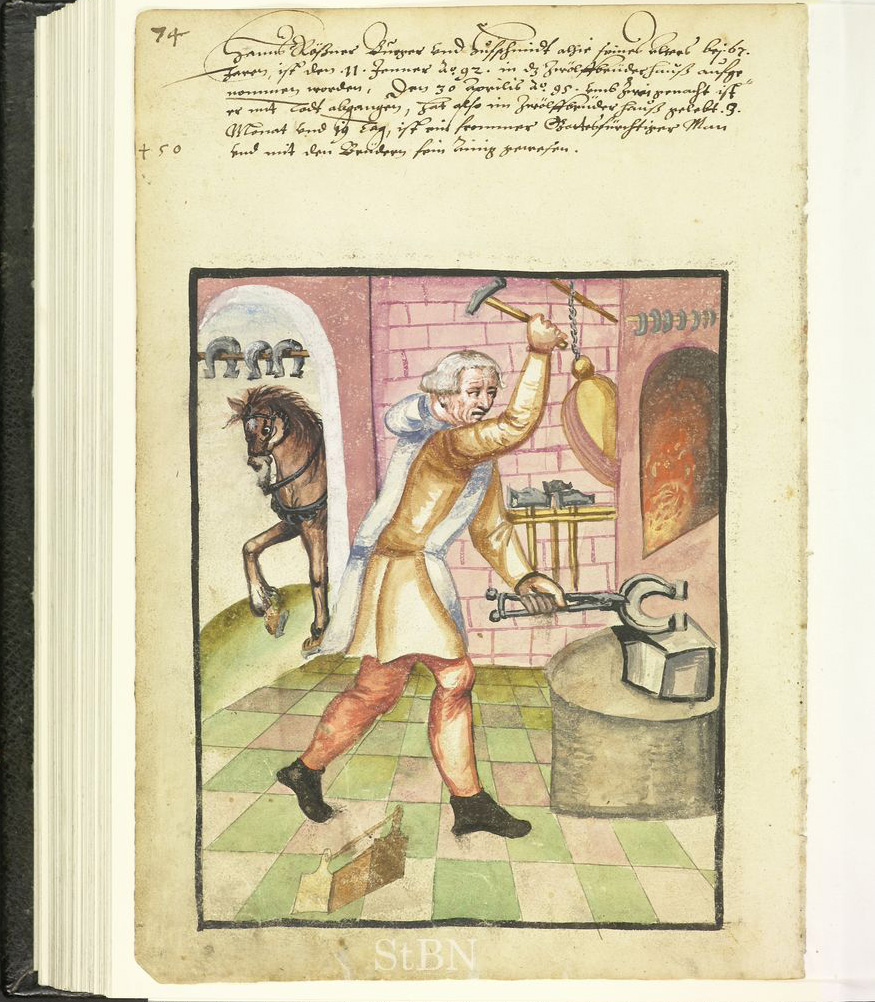 74
Hanns Rößner Burger vnd Hufschmidt alhie seines alters bej 67.
Jaren, ist den 11. Jenner Ao. 92. in dz Zwölffbrüder Hauß aufge
nommen worden, Den 30 Aprilis Ao. 95. ist
er mit Todt abgangen, hat also im Zwölffbrüder Hauß gelebt. 3.
Monat vnd 19 Tag, ist ein frommer Gottesfürchtiger Man
+ 50
vnd mit den Brüdern fein ainig gewesen.
StBN